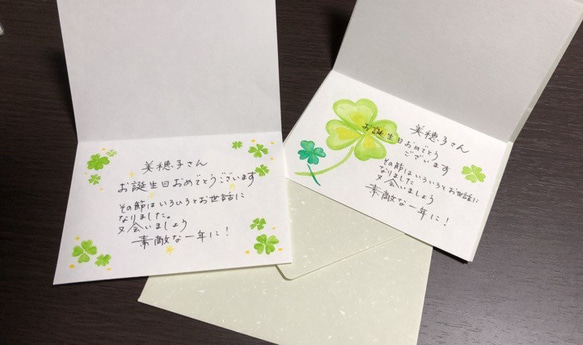 美穂子さん
お誕生日おめでとうございます
その節はいろいろとお世話に
なりました。
又会いましょう
素敵な一年に！
美穂子さん
お誕生日おめでとう
ございます
その節はいろいろとお世話に
なりました
又会いましょう
素敵な一年に！